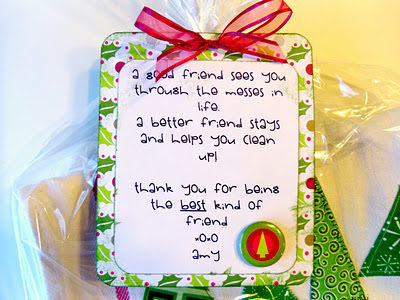 a good friend sees you
through the messes in
life.
a better friend stays
and helps you clean
up!
thank you for being
the best kind of
friend
xoxo
amy